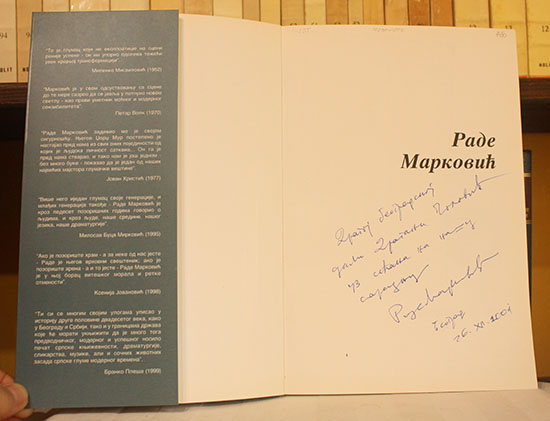 "То је глумац који не експлоатише на сцени
раније успехе - он им упорно одолева тежећи
увек новијој трансформацији"
Миленко Мисаиловић (1962)
"Марковић је у свом одсуствовању са сцене
до те мере сазрео да се јавља у потпуно новом
светлу - као прави уметник моћног и модерног
сензибилитета".
Петар Волк (1970)
"Раде Марковић надевио је
сигурношћу. Његов Џорџ Мур постепено је
настајао пред нама из свих оних појединости од
којих је људска личност саткана... Он са је
пред нама стварао, и тако нам је још једном -
без много буке - показао да је један од наших
највећих мајстора глумачке вештине"
Јован Христић (1977)
"Више него иједан глумац своје генерације, и
млађих генерација такође - Раде Марковић је
кроз педесет позоришних година говорио о
људима, и кроз људе, наше средине, нашег
језика, наше драматургије".
Милосав Буца Мирковић (1995)
"Ако је позориште храм - а за неке од нас јесте
- Раде је његов врховни свештеник; ако је
позориште арена - а и то јесте - Раде Марковић
је у њој борац витешког морала и ретке
отмености".
Ксенија Јовановић (1998)
"Ти си се многим својим улогама уписао у
историју друге половине двадесетог века, како
у Београду и Србији, тако и у границама држава
које ће морати укњижити да је много тога
предводничког, модерног и успешног носило
печат српске књижевности, драматургије,
сликарства, музике, али и сочних животних
засада српске глуме модерног времена".
Бранко Плеша (1999)
Раде
Марковић
Драгој београдској
уз сећања на нашу
Раде Марковић
Београд
26. XI. 2004
94
NOLIT